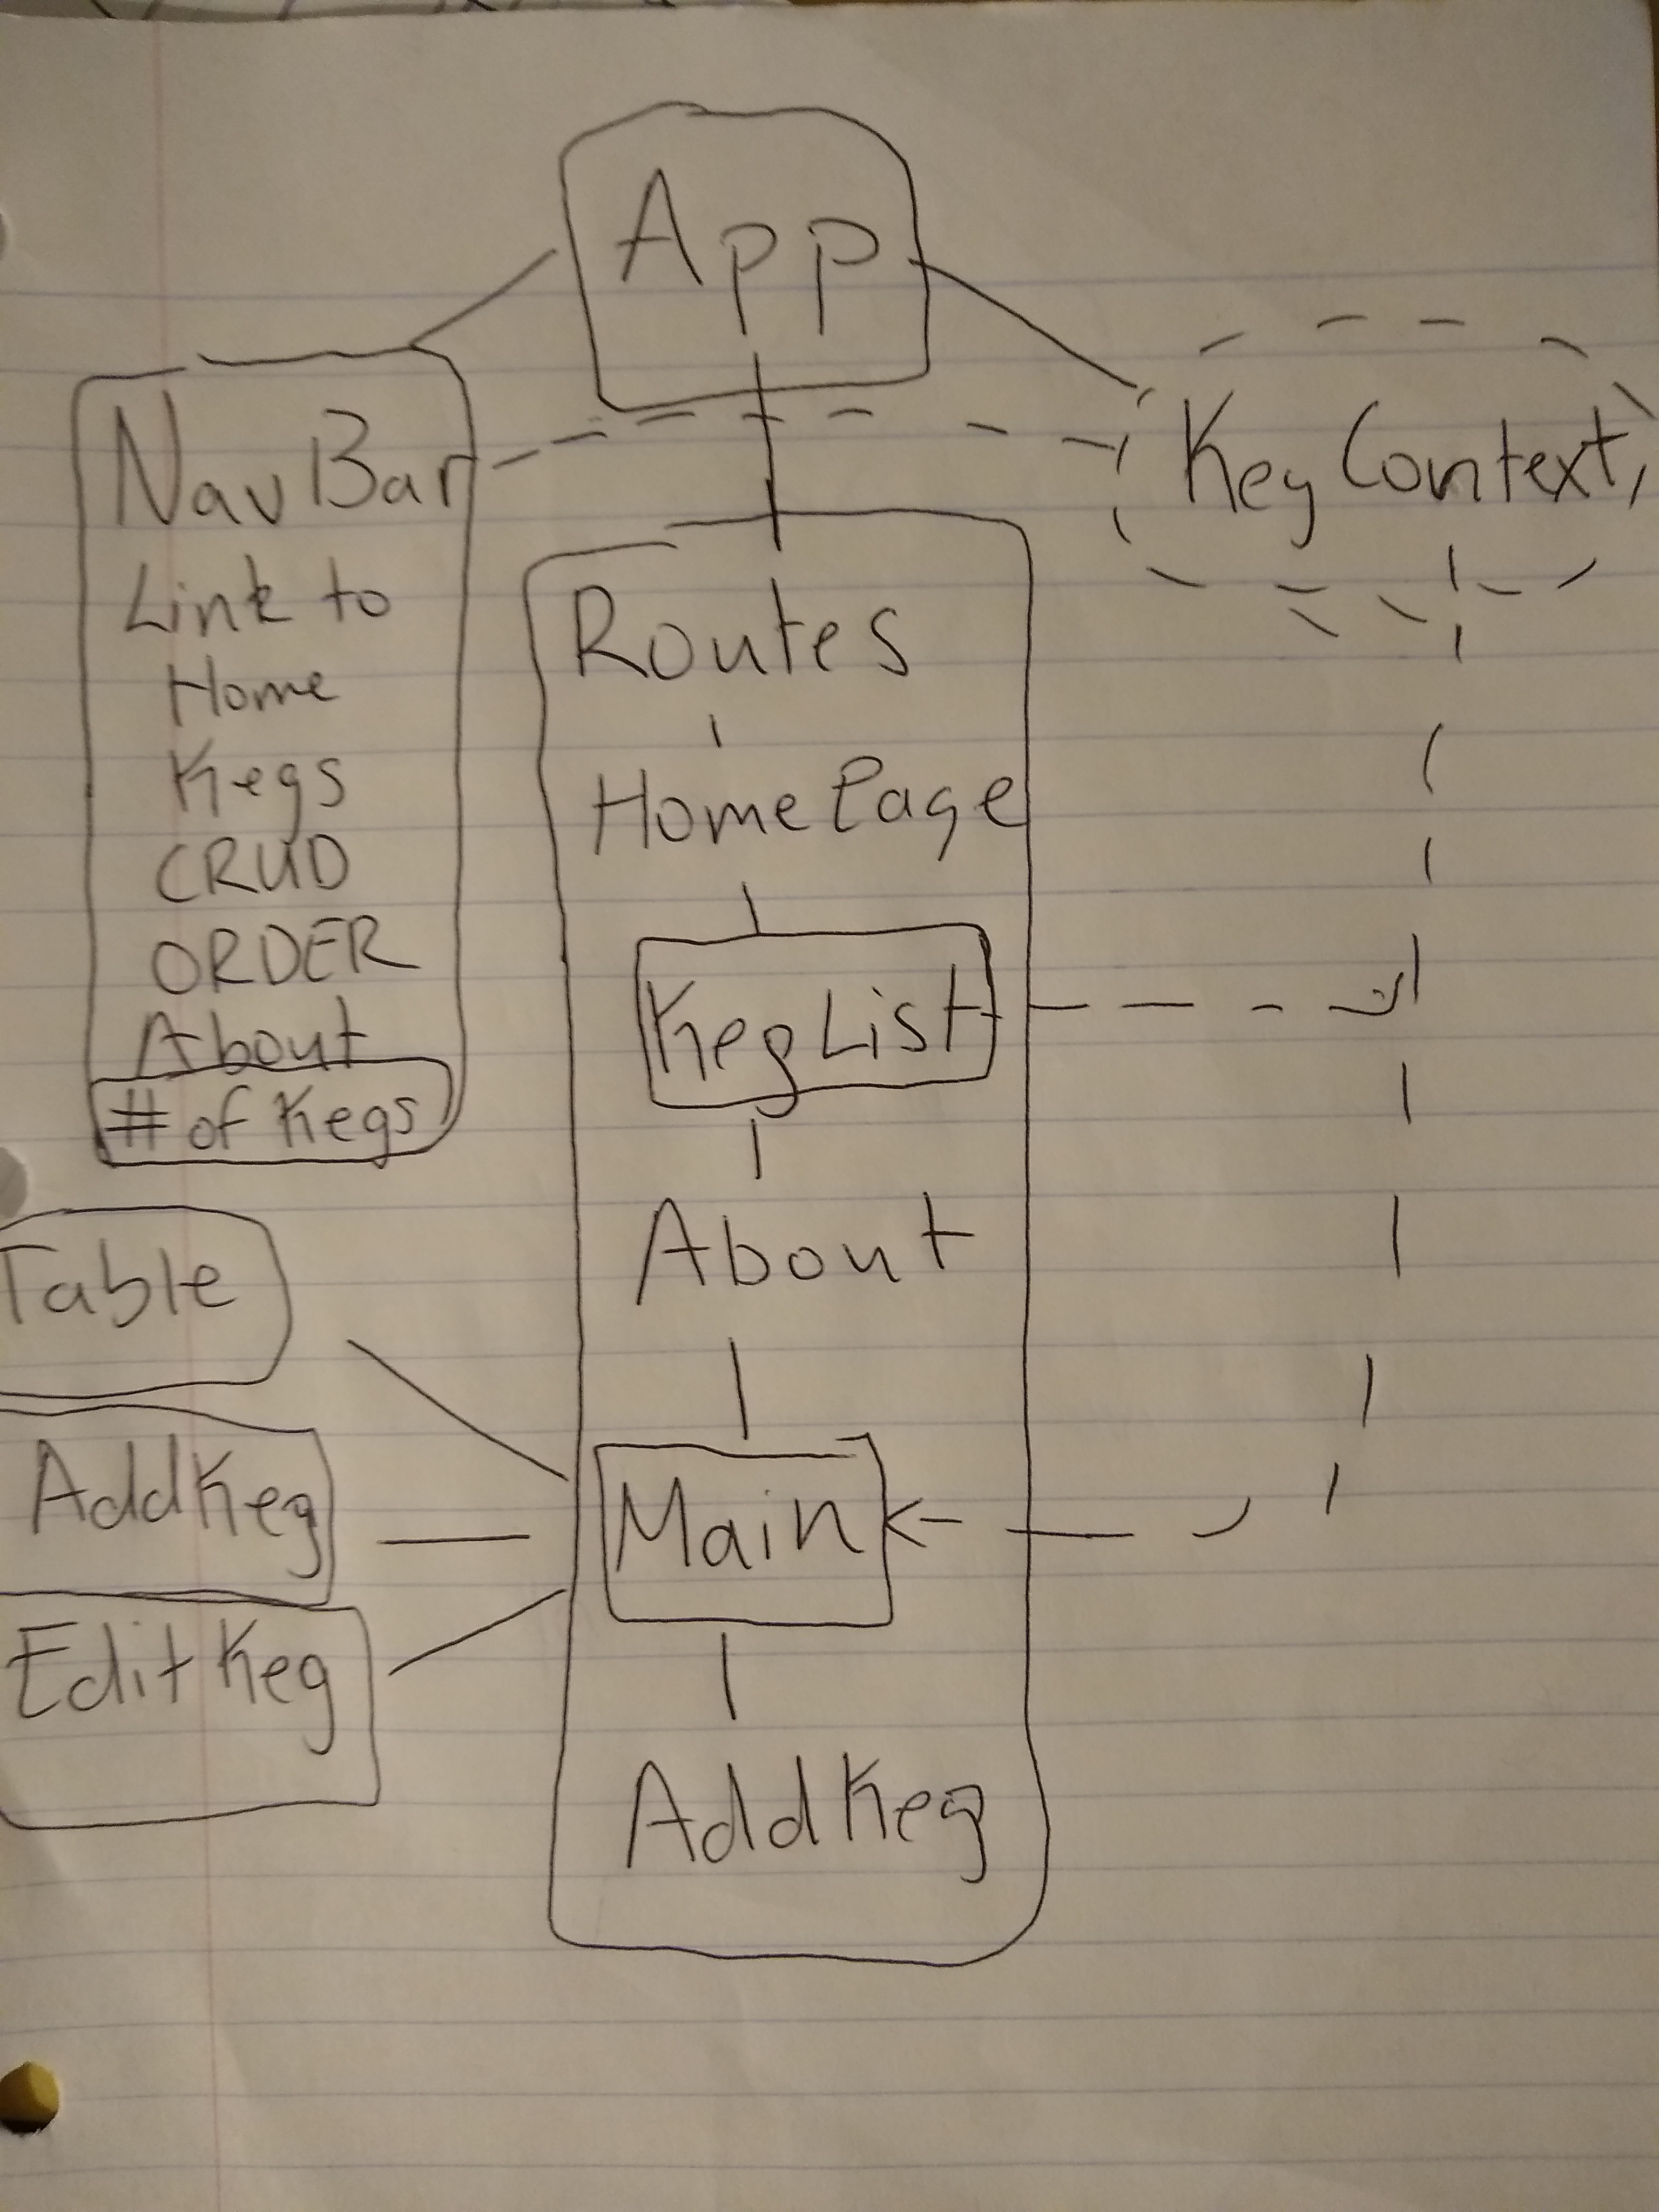 App
NavBar
Link to
Home
Kegs
CRUD
ORDER
About
# of Kegs
Keg Context
Routes
HomePage
KegList
About
Main
AddKeg
Table
AddKeg
EditKeg